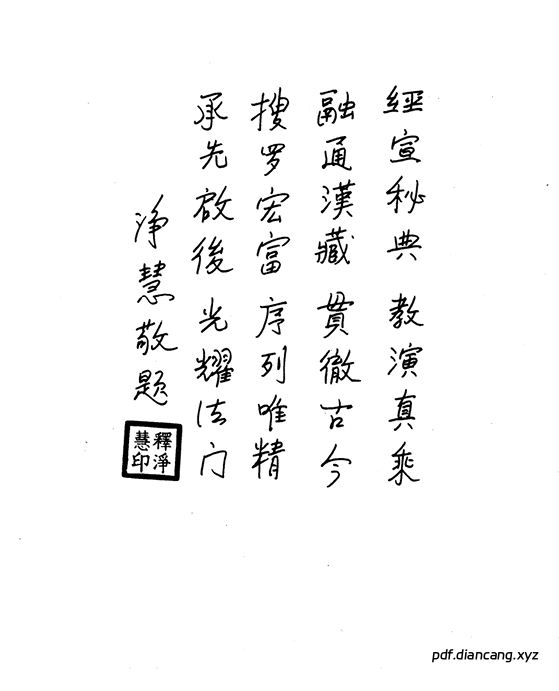 經宣秘典 教演真乘
融通漢藏 貫徹古今
搜罗宏富 序列唯精
承先啟後 光耀法门
淨慧敬題
釋淨慧印
pdf.diancang.xyz